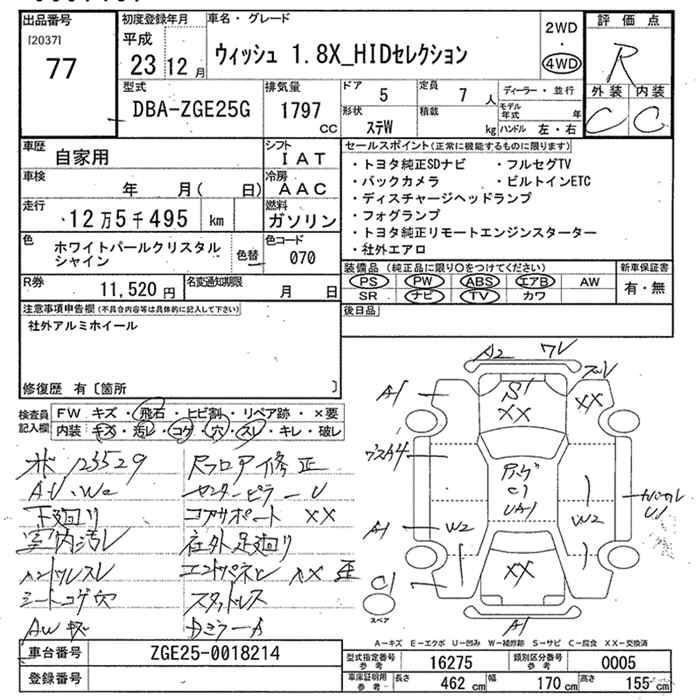 出品番号
[2037]
77
初度登録年月
平成
23年12月
車名・グレード
ウィッシュ 1.8X_HIDセレクション
2WD
・
4WD
評価点
R
外装 内装
C C
型式
DBA-ZGE25G
排気量
1797 CC
ドア 5
定員 7 人
形状 ステW
積載 kg
ディーラー・並行
モデル年式 年
ハンドル 左・右
車歴
自家用
シフト
IAT
車検
年 月( 日)
冷房
AAC
走行
12万5千495 km
燃料
ガソリン
色
ホワイトパールクリスタル
シャイン
色替
色コード
070
R券
11,520円
名変通知期限
月 日
セールスポイント(正常に機能するものに限ります)
・トヨタ純正SDナビ ・フルセグTV
・バックカメラ ・ビルトインETC
・ディスチャージヘッドランプ
・フォグランプ
・トヨタ純正リモートエンジンスターター
・社外エアロ
装備品(純正品に限り○をつけてください)
PS PW ABS エアB AW
SR ナビ TV カワ
新車保証書
有・無
後日品
注意事項申告欄(不具合内容等は具体的に記入して下さい)
社外アルミホイール
修復歴 有〔箇所 〕
検査員記入欄
FW キズ・飛石・ヒビ割・リペア跡・×要
内装 キズ・汚レ・コゲ・穴・スレ・キレ・破レ
ホ 123529
AU・W2
下廻り
室内汚レ
ハンドルスレ
シートコゲ穴
AWキズ
Rフロアー修正
センターピラーU
コアサポート XX
社外足廻り
エンドパネル XX 歪
スタッドレス
DミラーA
A2
A1
S1
XX
XX
A1
W2
C1
U41
W2
XX
C1
スペア
A1
A-キズ E-エクボ U-凹み W-補修跡 S-サビ C-腐食 XX-交換済
車台番号
ZGE25-0018214
登録番号
型式指定番号 参考
16275
類別区分番号 参考
0005
車庫証明用 参考
長さ 462 cm
幅 170 cm
高さ 155 cm